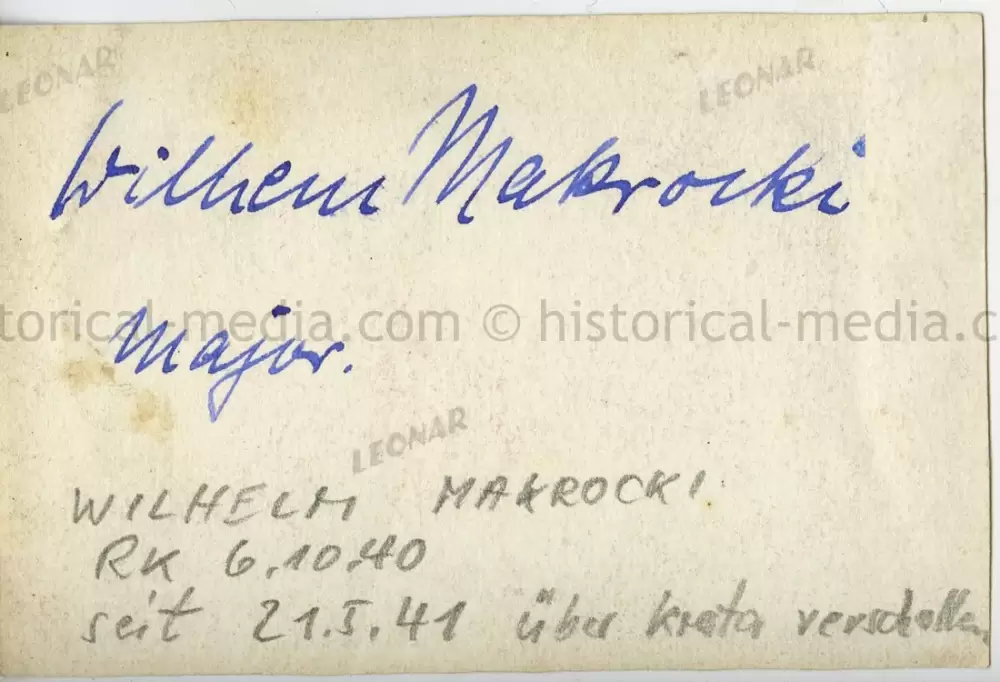 LEONAR LEONAR
Wilhelm Makrocki
torical-media.com © historical-media.c
Major.
LEONAR
WILHELM MAKROCKI
RK 6.10.40
seit 21.5.41 über Kreta verschollen